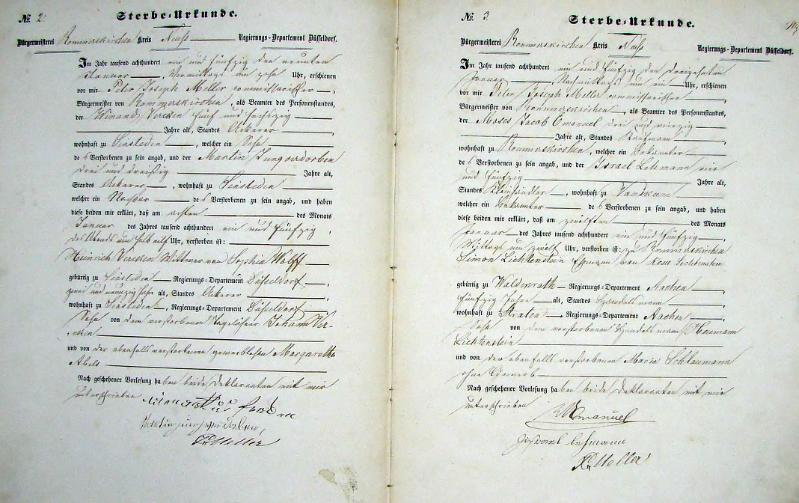 № 2.
Sterbe-Urkunde.
Bürgermeisterei Rommerskirchen Kreis Neuß Regierungs-Departement Düsseldorf.
Im Jahr tausend achthundert ein und fünfzig den neunten
Januar, Vormittags um zehn Uhr, erschienen
vor mir Peter Joseph Meller commissarischer
Bürgermeister von Rommerskirchen, als Beamten des Personenstandes,
der Winand fünf und
Jahre alt, Standes Ackerer
wohnhaft zu Sinsteden, welcher ein Sohn
des Verstorbenen zu sein angab, und der Martin Jungverdorben
drei und dreißig Jahre alt,
Standes Ackerer, wohnhaft zu Sinsteden
welcher ein Nachbar des Verstorbenen zu sein angab, und haben
diese beiden mir erklärt, daß am achten des Monats
Januar des Jahres tausend achthundert ein und fünfzig,
um halb elf Uhr, verstorben ist:
Heinrich Wittwer von Sophia Wolff
gebürtig zu Sinsteden Regierungs-Departement Düsseldorf
Jahre alt, Standes Ackerer
wohnhaft zu Sinsteden, Regierungs-Departement Düsseldorf
Sohn von dem verstorbenen Tagelöhner Johann
und von der ebenfalls verstorbenen gewerblosen Margaretha
Abels
Nach geschehener Vorlesung haben beide Deklaranten mit mir
unterschrieben
PJMeller
№ 3.
Sterbe-Urkunde.
Bürgermeisterei Rommerskirchen Kreis Neuß Regierungs-Departement Düsseldorf.
Im Jahr tausend achthundert ein und fünfzig den dreizehnten
Januar, Nachmittags um ein Uhr, erschienen
vor mir Peter Joseph Meller commissarischer
Bürgermeister von Rommerskirchen, als Beamten des Personenstandes,
der Moses Jacob Emanuel drei und vierzig
Jahre alt, Standes Kaufmann
wohnhaft zu Rommerskirchen, welcher ein Bekannter
des Verstorbenen zu sein angab, und der Israel Lehmann ein
und fünfzig Jahre alt,
Standes Kleinhändler, wohnhaft zu
welcher ein Bekannter des Verstorbenen zu sein angab, und haben
diese beiden mir erklärt, daß am zwölften des Monats
Januar des Jahres tausend achthundert ein und fünfzig
Mittags um zwölf Uhr, verstorben ist: zu Rommerskirchen
Simon Lichtenstein Ehemann von Rosa Lichtenstein
gebürtig zu Waldenrath Regierungs-Departement Aachen
fünfzig Jahre alt, Standes Handelsmann
wohnhaft zu Regierungs-Departement Aachen
Sohn von dem verstorbenen Handelsmann Hermann
Lichtenstein
und von der ebenfalls verstorbenen Maria Schlaumann
ohne Gewerb
Nach geschehener Vorlesung haben beide Deklaranten mit mir
unterschrieben
Emanuel
PJMeller